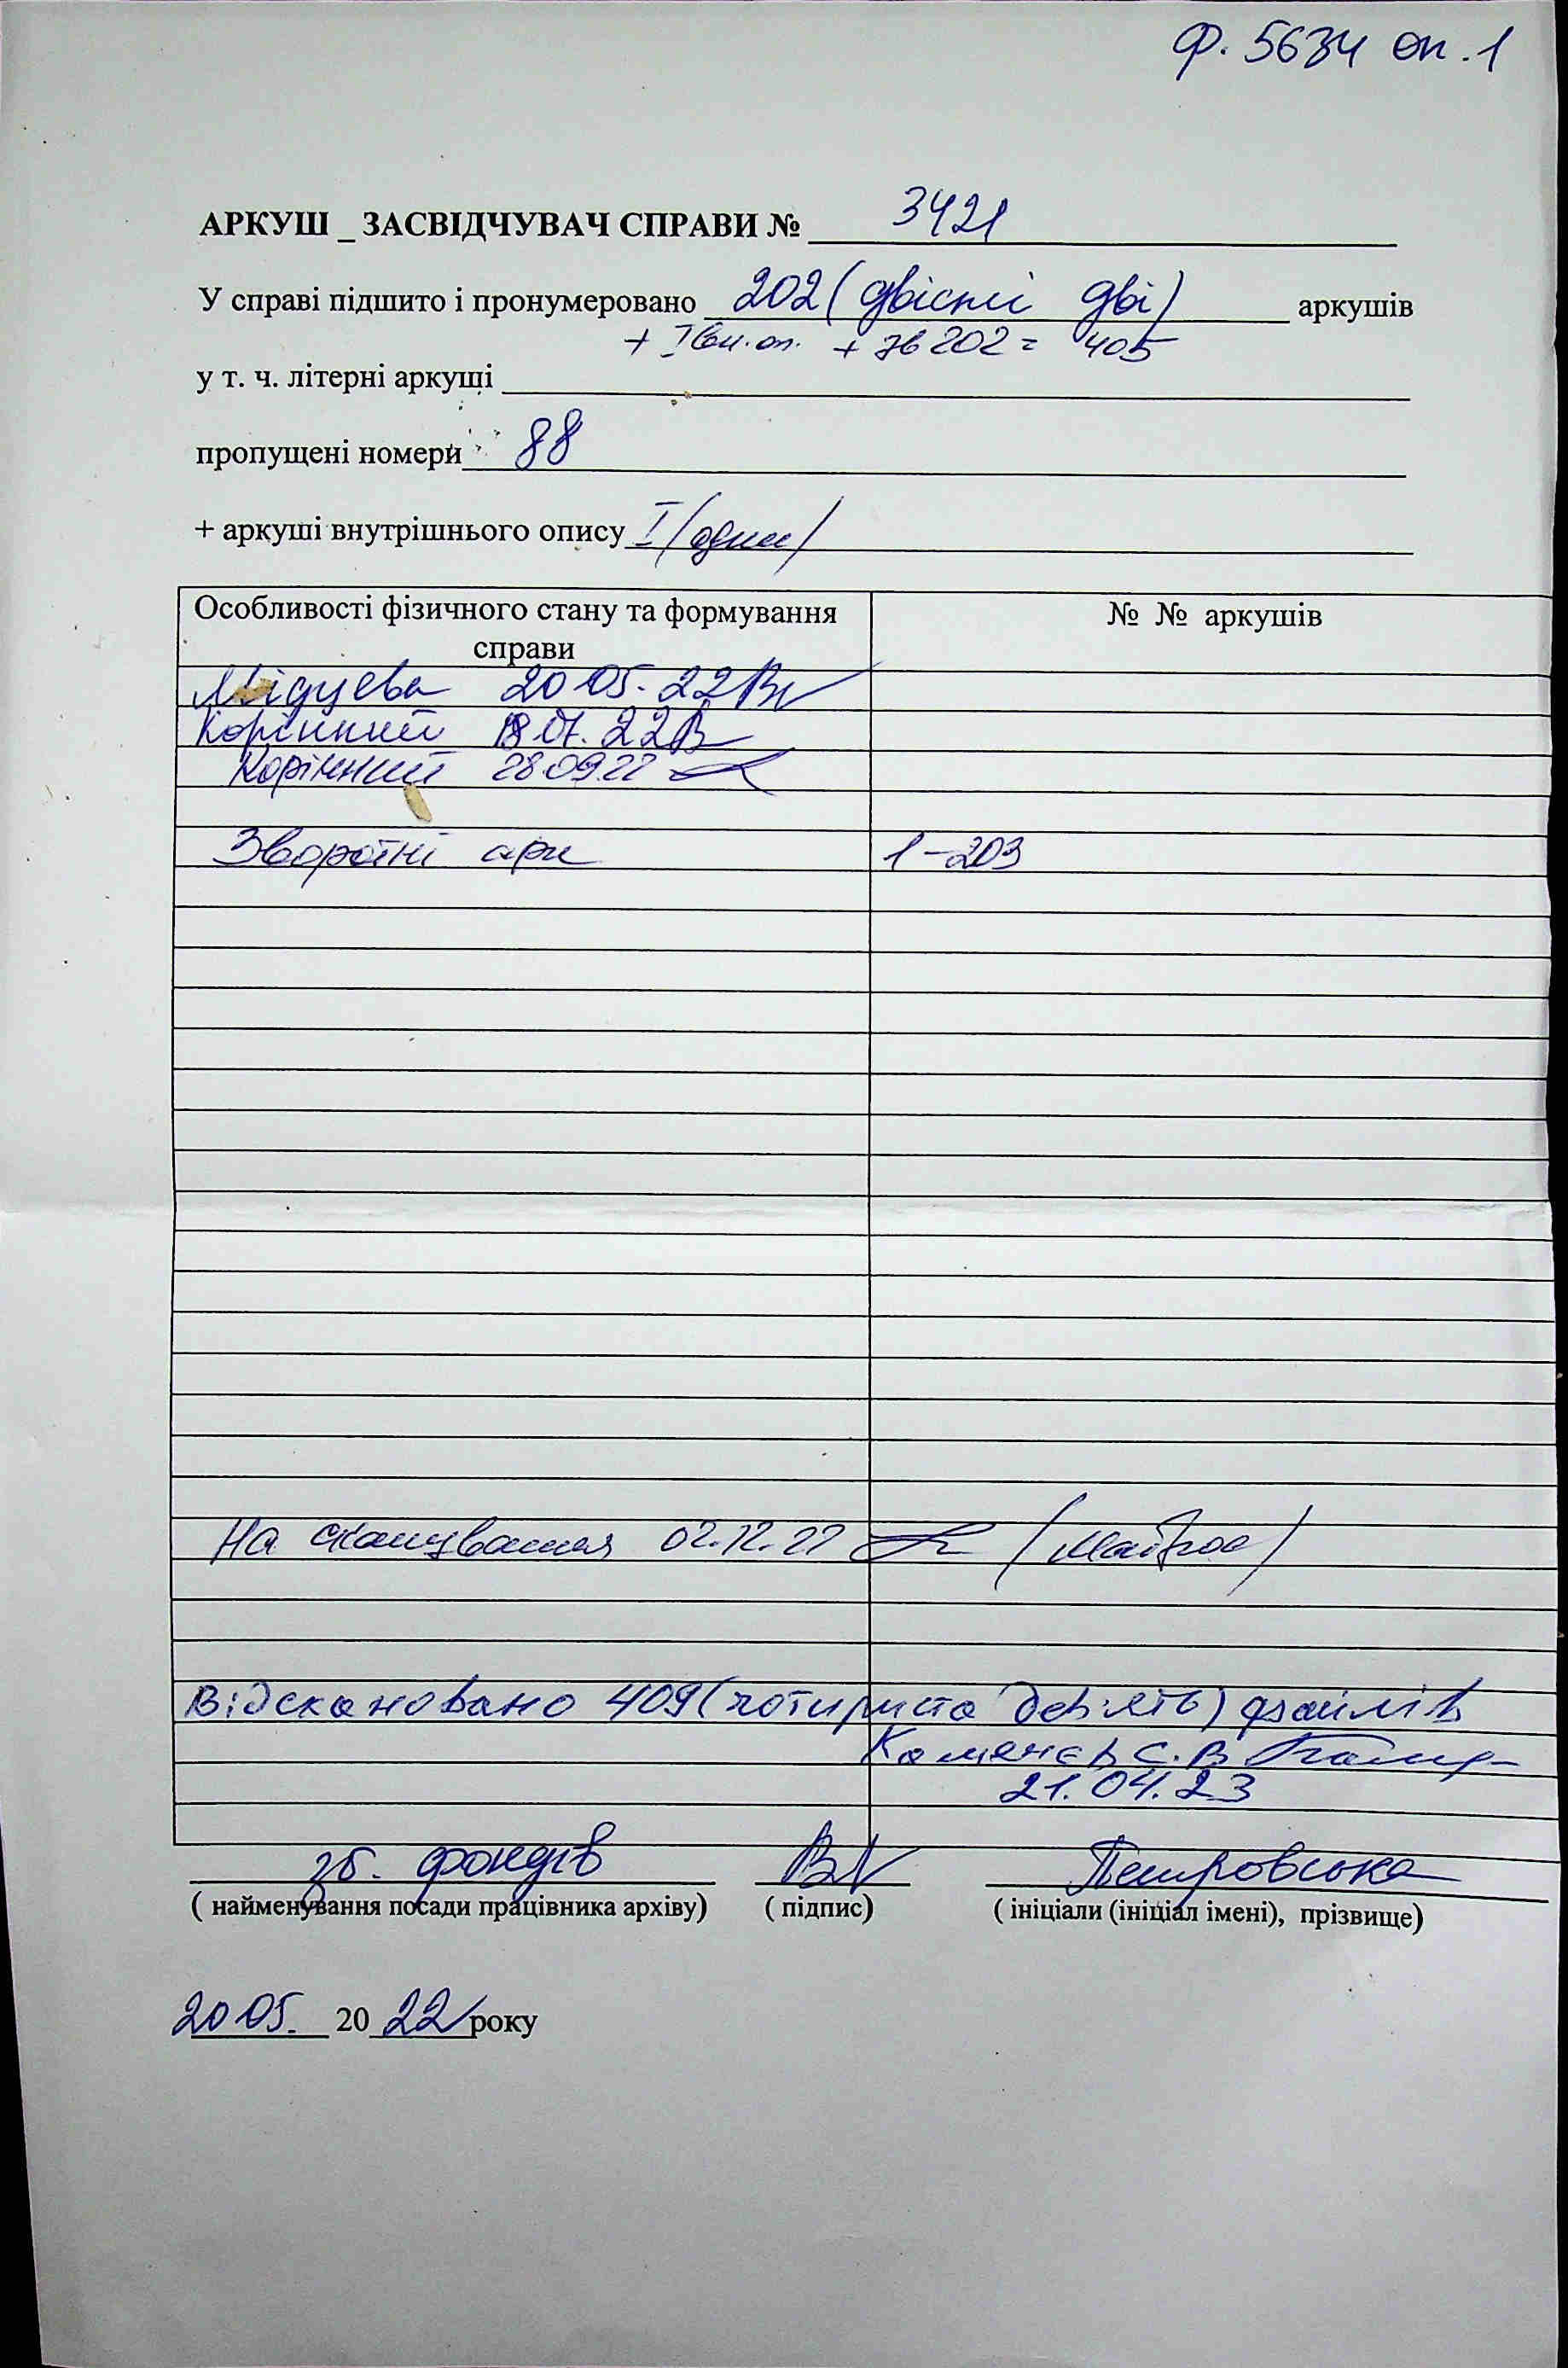 ф. 5634 оп. 1
АРКУШ _ ЗАСВІДЧУВАЧ СПРАВИ № 3421
У справі підшито і пронумеровано 202 (двісті дві) аркушів
+ I вн. оп. + зв 202 = 405
у т. ч. літерні аркуші
пропущені номери 88
+ аркуші внутрішнього опису I /один/
Особливості фізичного стану та формування справи № № аркушів
20.05.22
Корінний 18.07.22
Корінний 28.09.22
Зворотні арк 1-203
На сканування 02.12.22
Відскановано 409 (чотириста дев'ять) файлів
С.В
21.04.23
зб. фондів Петровська
( найменування посади працівника архіву) ( підпис) ( ініціали (ініціал імені), прізвище)
20.05. 20 22 року